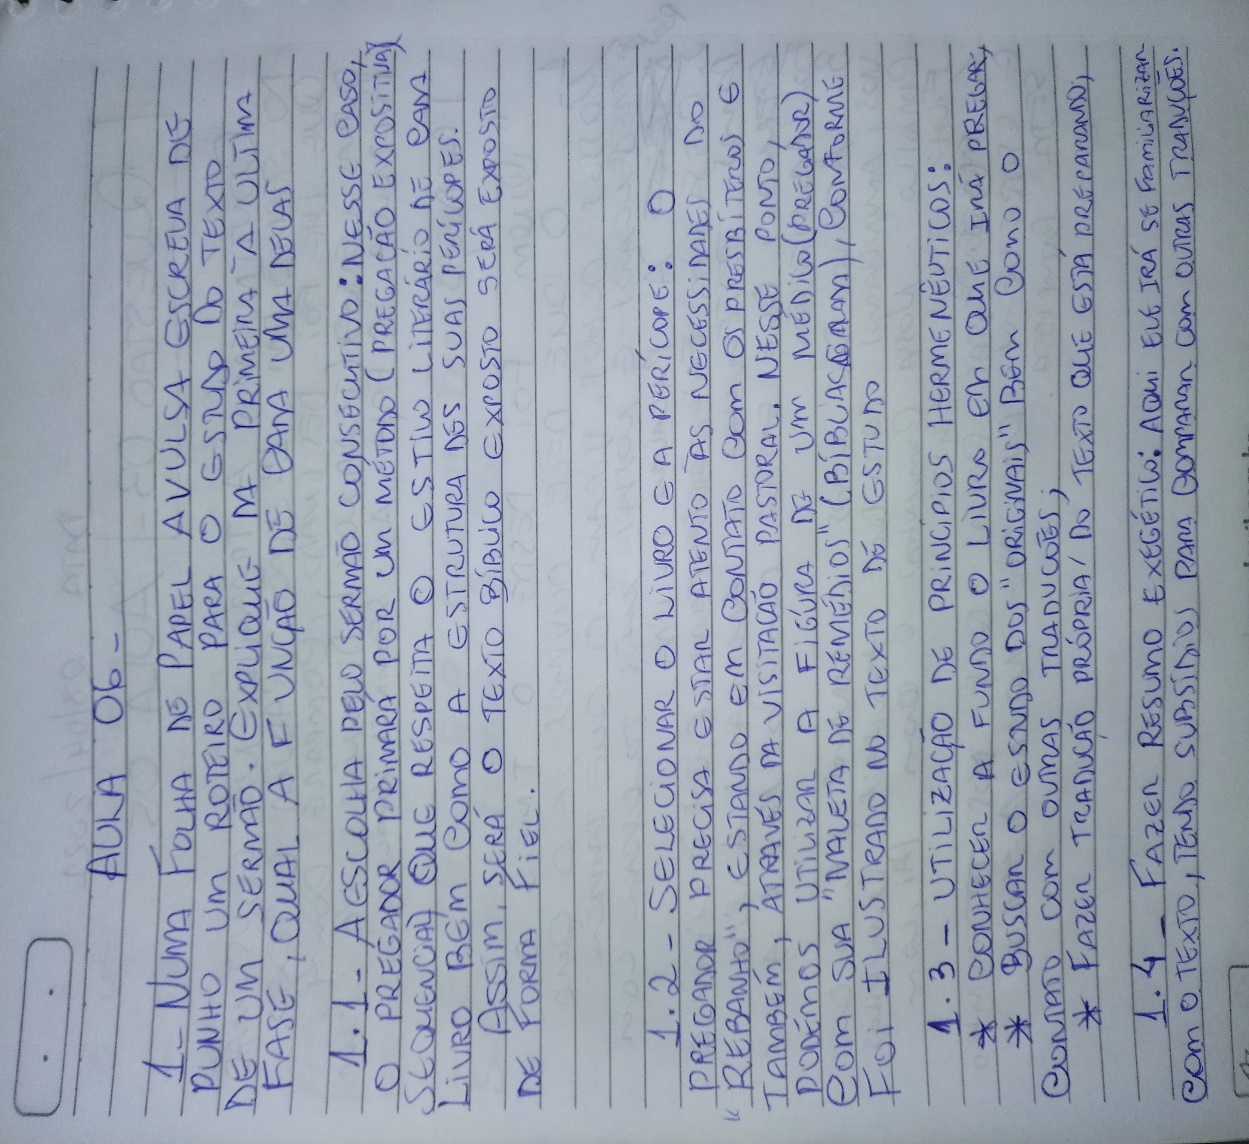 AULA 06-
1- NUMA FOLHA DE PAPEL AVULSA ESCREVA DE
PUNHO UM ROTEIRO PARA O ESTUDO DO TEXTO
DE UM SERMÃO. EXPLIQUE DA PRIMEIRA À ULTIMA
FASE, QUAL A FUNÇÃO DE CADA UMA DELAS
1.1- A ESCOLHA PELO SERMÃO CONSECUTIVO: NESSE CASO,
O PREGADOR PRIMARÁ POR UM MÉTODO (PREGAÇÃO EXPOSITIVA
SEQUENCIAL) QUE RESPEITA O ESTILO LITERÁRIO DE CADA
LIVRO BEM COMO A ESTRUTURA DES SUAS PERÍCOPES.
ASSIM, SERÁ O TEXTO BÍBLICO EXPOSTO SERÁ EXPOSTO
DE FORMA FIEL.
1.2- SELECIONAR O LIVRO E A PERÍCOPE: O
PREGADOR PRECISA ESTAR ATENTO ÀS NECESSIDADES DO
"REBANHO", ESTANDO EM CONTATO COM OS PRESBÍTEROS E
TAMBÉM, ATRAVÉS DA VISITAÇÃO PASTORAL. NESSE PONTO,
PODEMOS UTILIZAR A FIGURA DE UM MÉDICO (PREGADOR)
COM SUA "MALETA DE REMÉDIOS" (BÍBLIA SAGRADA), CONFORME
FOI ILUSTRADO NO TEXTO DE ESTUDO
1.3- UTILIZAÇÃO DE PRINCÍPIOS HERMENÊUTICOS:
* CONHECER A FUNDO O LIVRO EM QUE IRÁ PREGAR;
* BUSCAR O ESTUDO DOS "ORIGINAIS" BEM COMO O
CONTATO COM OUTRAS TRADUÇÕES;
* FAZER TRADUÇÃO PRÓPRIA/ DO TEXTO QUE ESTÁ PREPARANDO;
1.4- FAZER RESUMO EXEGÉTICO: AQUI ELE IRÁ SE FAMILIARIZAR
COM O TEXTO, TENDO SUBSÍDIOS PARA COMPARAR COM OUTRAS TRADUÇÕES.